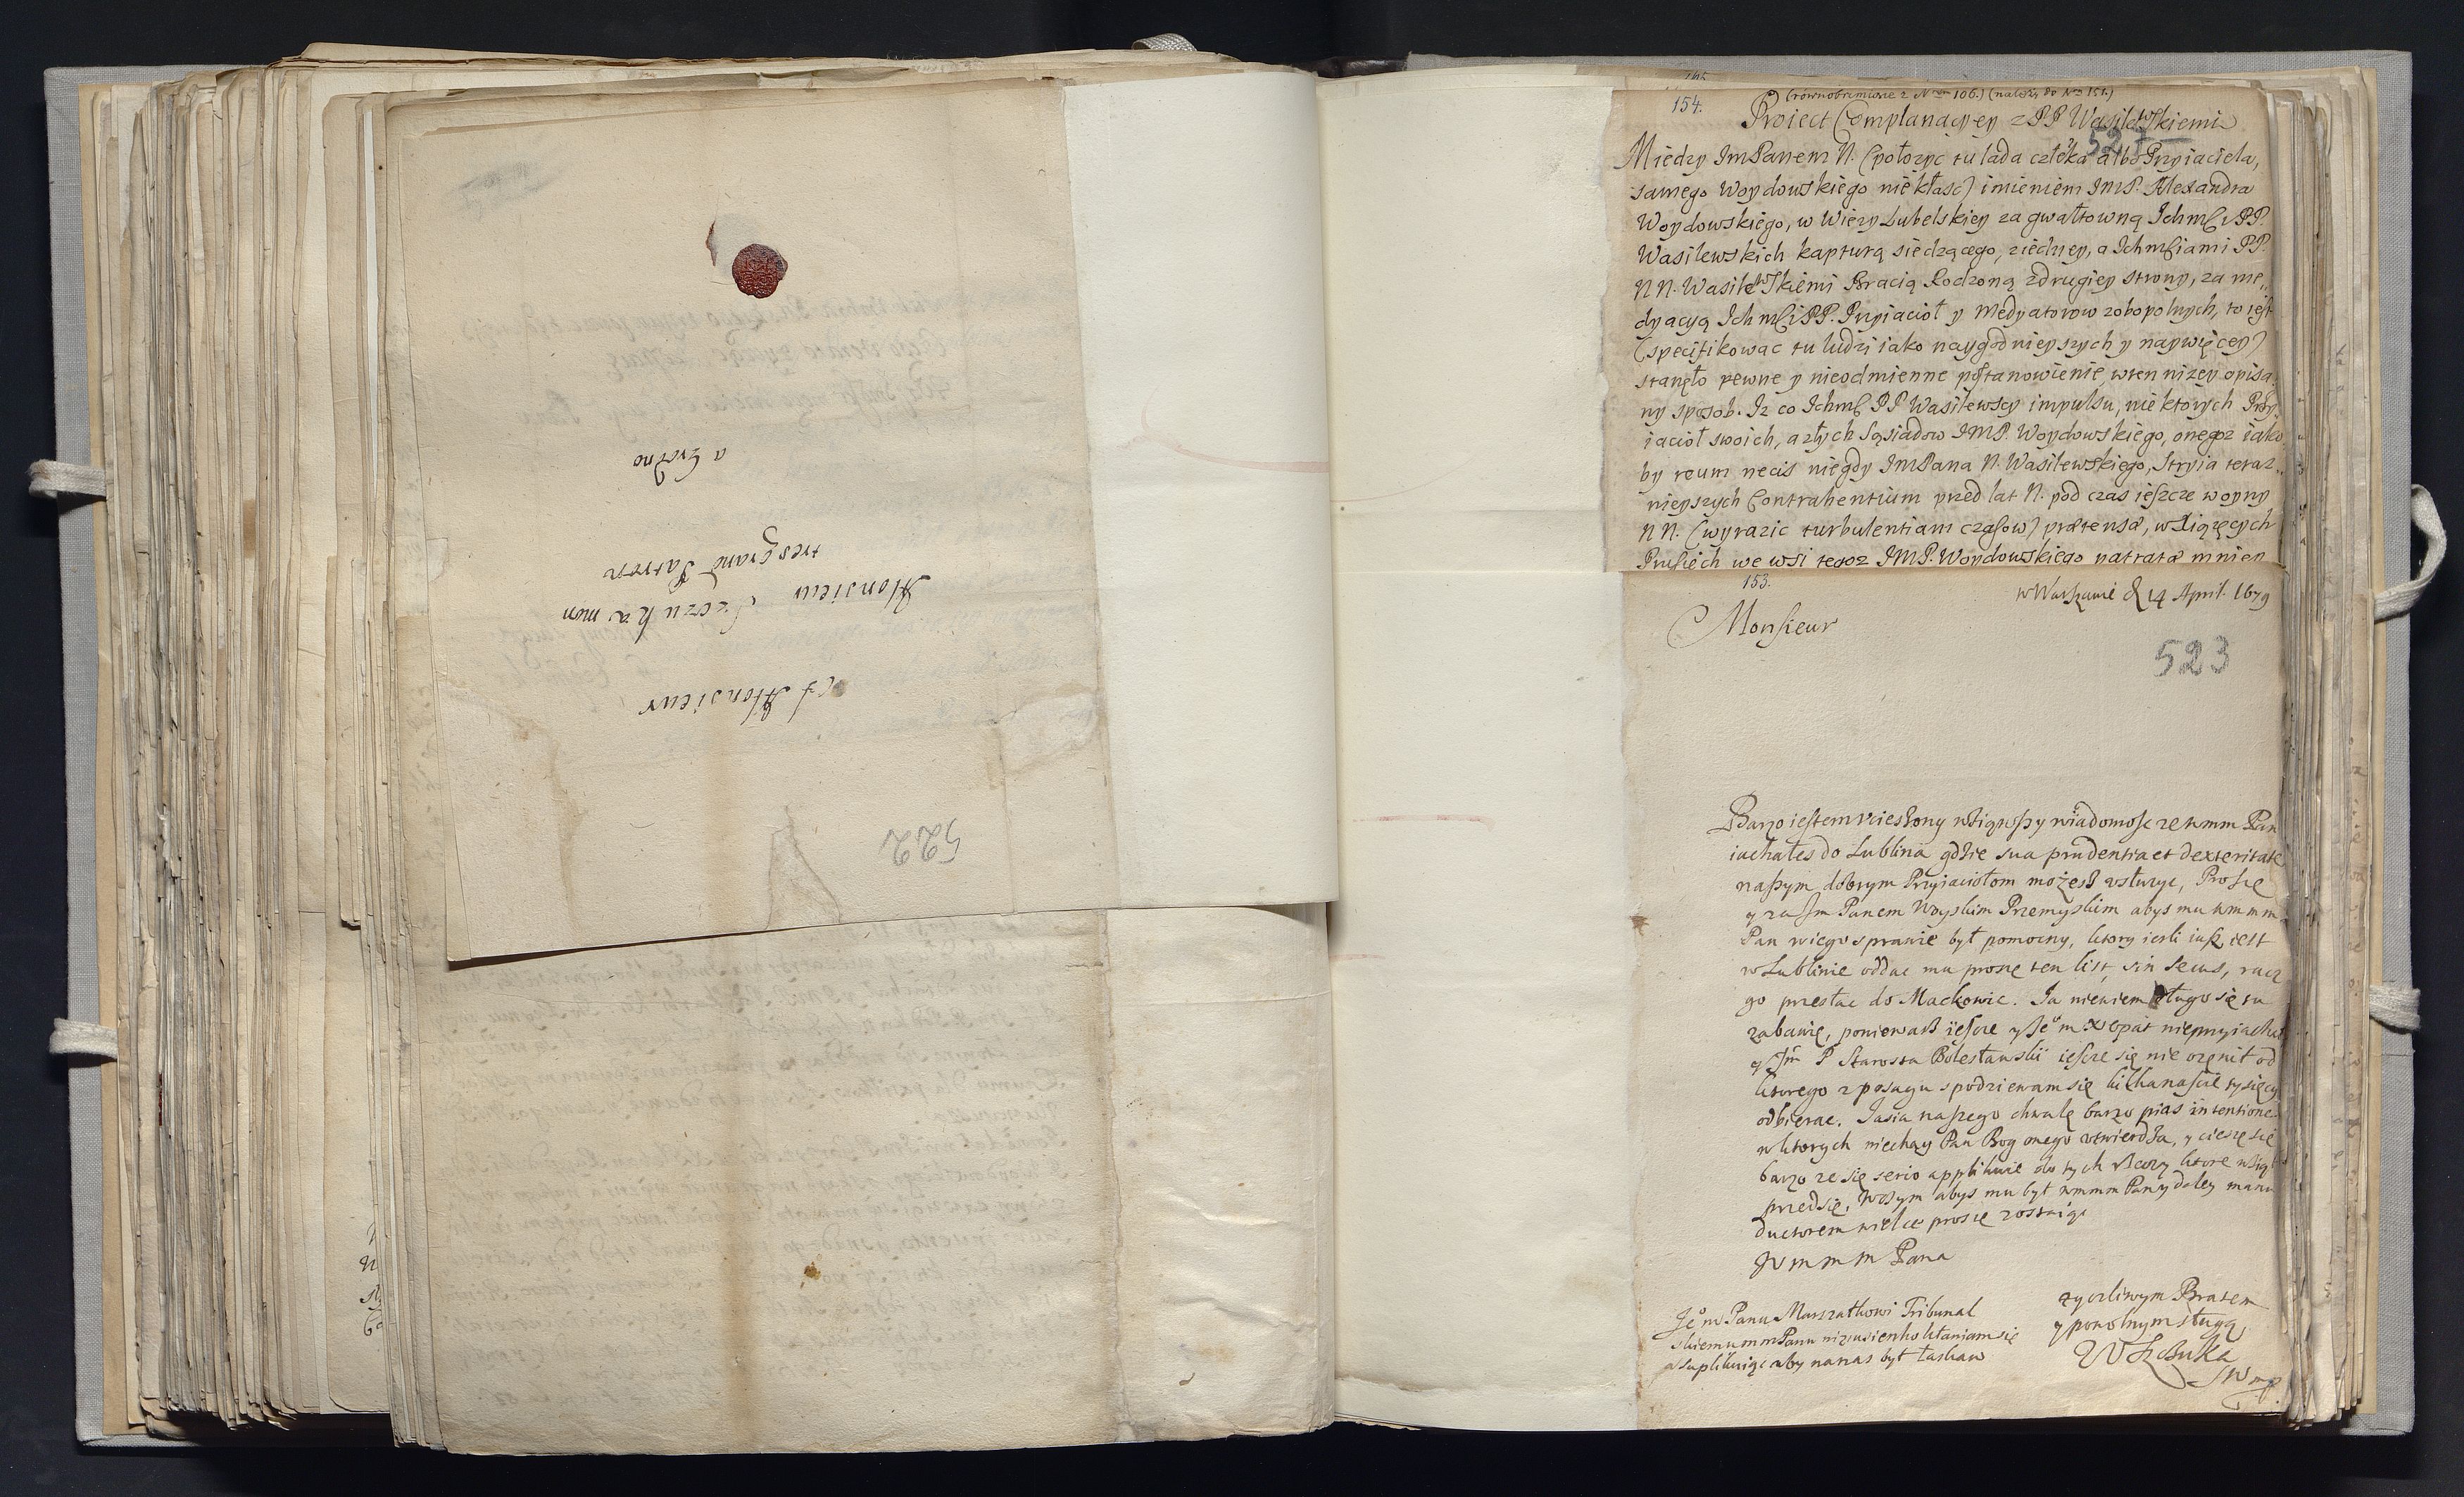 A Monsieur
Monsieur Szczuka mon
tres grand Patron
a Grodno
522
154.
(równobrzmiące z Nrem 106.) (należy do No 151.)
Proiect Complanacyey z PP Wasilewskiemi
Miedzy ImPanem N. (położyc tu lada człeka albo Przyiaciela,
samego Woydowskiego niekłasć) imieniem ImP. Alexandra
Woydowskiego, w Wieży Lubelskiey za gwałtowną Ichmć PP.
Wasilewskich kapturą siedzącego, ziedney, a Ichmściami PP.
NN. Wasilewskiemi Bracią Rodzoną zdrugiey strony, za me„
dyacyą Ichmści PP. Przyiacioł y Medyatorow zobopolnych, to iest
(specifikowac tu ludzi iako naygodnieyszych y naywięcey)
stanęło pewne y nieodmienne postanowienie, wten niżey opisa„
ny sposob. Iż co Ichmć PP Wasilewscy impulsu, niektorych Przy„
iacioł swoich, a złych Sąsiadow IMP. Woydowskiego, onegoz iako
by reum necis niegdy ImPana N. Wasilewskiego, Stryia teraz„
nieyszych Contrahentium przed lat N. pod czas ieszcze woyny
NN. (wyrazic turbulentiam czasow) prætensæ, w Xiążęcych
Prusiech we wsi tegoz IMP. Woydowskiego patratæ mnien
153.
w Warszawie d 14 April. 1679
Monsieur
523
Barzo iestem ucieszony wziąwszy wiadomosc ze wmm Pan
iachałes do Lublina gdzie sua prudentia et dexteritate
naszym dobrym Przyiaciołom możesz usłużyc, Proszę
y za Jm Panem Woyskim Przemyskim abys mu wmmm
Pan w iego sprawie był pomocny, ktory iesli iusz iest
w Lublinie oddac mu proszę ten list, sin secus, racz
go przesłac do Mackowic. Ja niewiem długo się tu
zabawię, poniewasz iescze y Jeom X Opat nieprzyiachał
y Jm P Starosta Bolesławski iescze się nie ozenił od
ktorego z posagu spodziewam się kilkanascie tysięcy
odbierac. Jasia naszego chwalę barzo pias intentiones
w ktorych niechay Pan Bog onego utwierdza, y cieszę się
barzo ze się serio applikuie do tych rzeczy ktore wziął
przedsię, w czym abys mu był wmmm Pan y daley manu
ductorem wielce proszę zostaiąc
Wmmm Pana
zyczliwym Bratem
y powolnym sługą
W Sczuka
SW mp.
Jeom Panu Marszałkowi Tribunal
skiemu mm Panu nizusienko kłaniam się
a suplikuię aby na nas był łaskaw